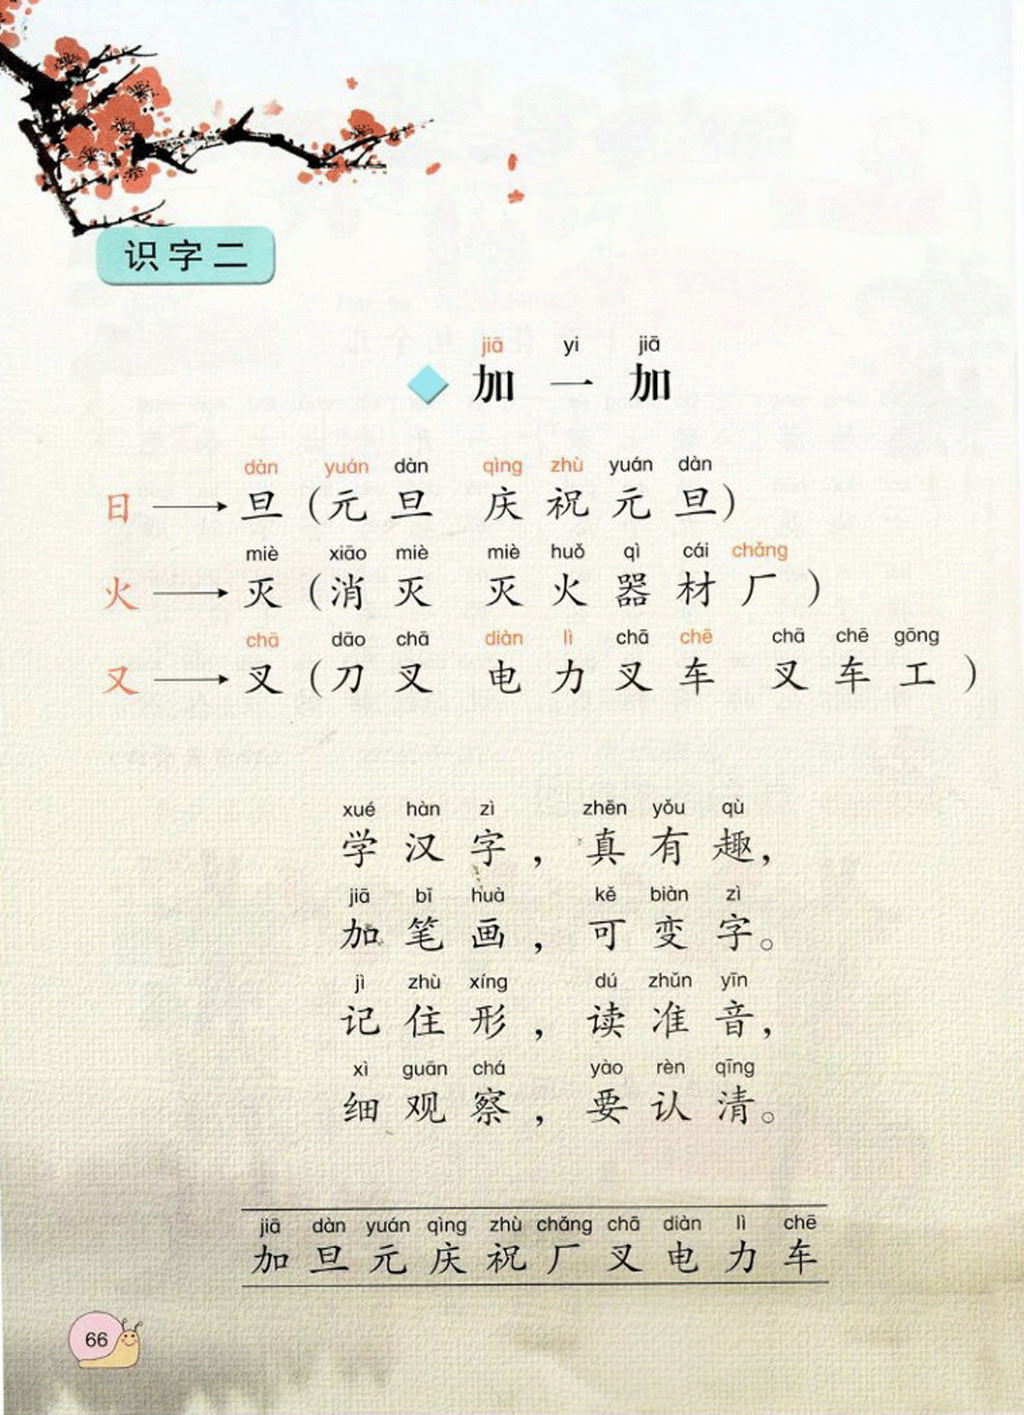 识字二
jiā yi jiā
加一加
dàn yuán dàn qìng zhù yuán dàn
日→旦(元旦 庆祝元旦)
miè xiāo miè miè huǒ qì cái chǎng
火→灭(消灭 灭火器材厂)
chā dāo chā diàn lì chā chē chā chē gōng
又→叉(刀叉 电力叉车 叉车工)
xué hàn zì zhēn yǒu qù
学汉字，真有趣，
jiā bǐ huà kě biàn zì
加笔画，可变字。
jì zhù xíng dú zhǔn yīn
记住形，读准音，
xì guān chá yào rèn qīng
细观察，要认清。
jiā dàn yuán qìng zhù chǎng chā diàn lì chē
加旦元庆祝厂叉电力车
66